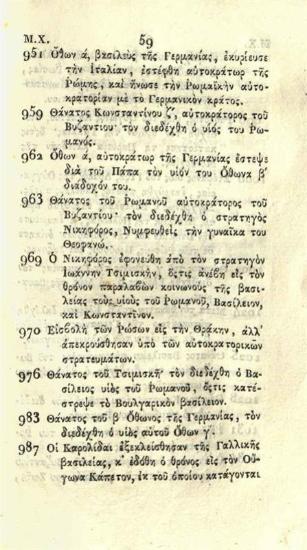 Μ.Χ. 59
951 Ὄθων ά, βασιλεὺς τῆς Γερμανίας, ἐκυρίευσε
τὴν Ἰταλίαν, ἐστέφθη αὐτοκράτωρ τῆς
Ῥώμης, καὶ ἥνωσε τὴν Ῥωμαϊκὴν αὐτο-
κρατορίαν μὲ τὸ Γερμανικὸν κράτος.
959 Θάνατος Κωνσταντίνου ζ΄, αὐτοκράτορος τοῦ
Βυζαντίου· τὸν διεδέχθη ὁ υἱός του Ῥω-
μανός.
962 Ὄθων ά, αὐτοκράτωρ τῆς Γερμανίας ἔστεψε
διὰ τοῦ Πάπα τὸν υἱόν του Ὄθωνα β΄
διάδοχόν του.
963 Θάνατος τοῦ Ῥωμανοῦ αὐτοκράτορος τοῦ
Βυζαντίου· τὸν διεδέχθη ὁ στρατηγὸς
Νικηφόρος, Νυμφευθεὶς τὴν γυναῖκα του
Θεοφανώ.
969 Ὁ Νικηφόρος ἐφονεύθη ἀπὸ τὸν στρατηγὸν
Ἰωάννην Τσιμισκῆν, ὅςτις ἀνέβη εἰς τὸν
θρόνον παραλαβὼν κοινωνοὺς τῆς βασι-
λείας τοὺς υἱοὺς τοῦ Ῥωμανοῦ, Βασίλειον,
καὶ Κωνσταντῖνον.
970 Εἰσβολὴ τῶν Ῥώσων εἰς τὴν Θράκην, ἀλλ᾽
ἀπεκρούσθησαν ὑπὸ τῶν αὐτοκρατορικῶν
στρατευμάτων.
976 Θάνατος τοῦ Τσιμισκῆ· τὸν διεδέχθη ὁ Βα-
σίλειος υἱὸς τοῦ Ῥωμανοῦ, ὅςτις κατέ-
στρεψε τὸ Βουλγαρικὸν βασίλειον.
983 Θάνατος τοῦ β΄ Ὄθωνος τῆς Γερμανίας, τὸν
διεδέχθη ὁ υἱὸς αὐτοῦ Ὄθων γ΄.
987 Οἱ Καρολίδαι ἐξεκλείσθησαν τῆς Γαλλικῆς
βασιλείας, κ᾽ ἐδόθη ὁ θρόνος εἰς τὸν Οὔ-
γωνα Κάπετον, ἐκ τοῦ ὁποίου κατάγονται